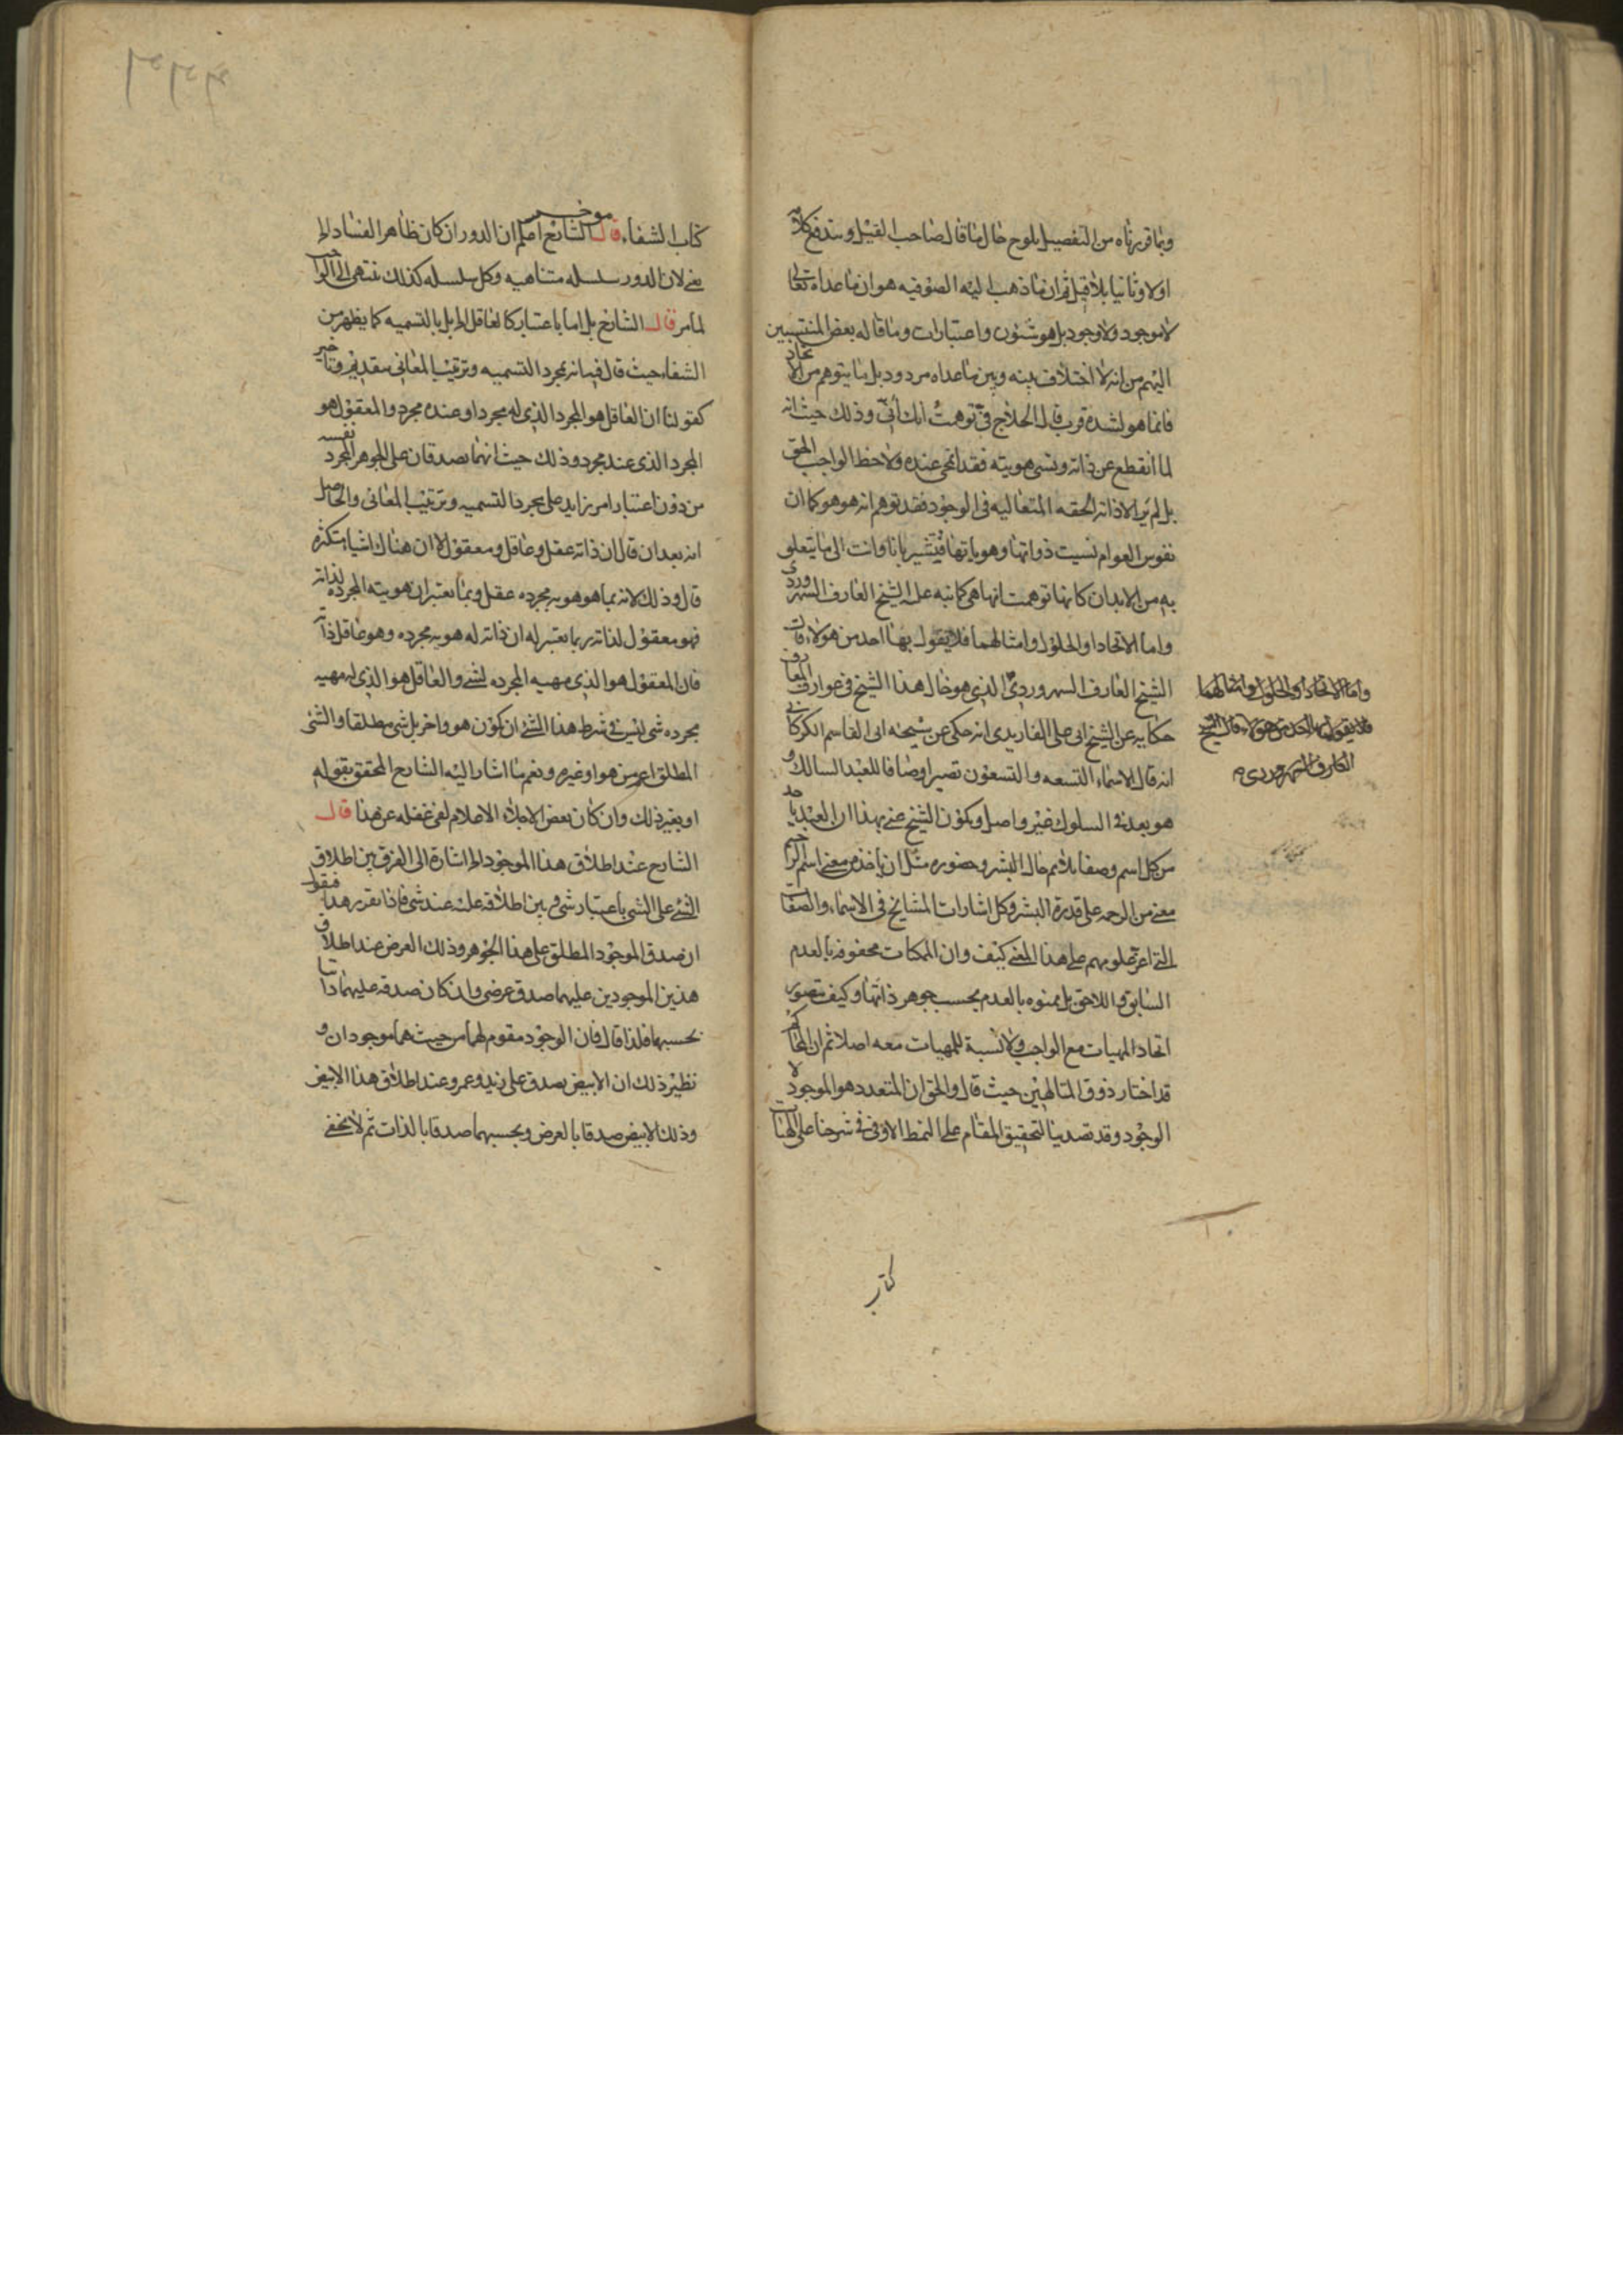 وبما قررناه من التفصيل يلوح حال ما قال صاحب القيل ويندفع كلامه
اولا وثانيا بلا قيل ثم ان ما ذهب اليه الصوفيه هو ان ما عداه تعالى
لا موجود ولا وجود بل هو شئون واعتبارات وما قاله بعض المنتسبين
اليهم من انه لا اختلاف بينه وبين ما عداه مردود بل ما يتوهم من الاتحاد
فانما هو لشدة قرب قال الحلاج في توهمت انك اني وذلك حيث انه
لما انقطع عن ذاته ونسى هويته فقد انمحى عنده ولاحظ الواجب الحق
بل لم ير الا ذاته الحقه المتعاليه فى الوجود فقد توهم انه هو هو كما ان
نفوس العوام نسيت ذواتها وهوياتها فتشير بانا وانت الى ما يتعلق
به من الابدان كانها توهمت انها هى كما نبه عليه الشيخ العارف السهروردى
واما الاتحاد او الحلول وامثالهما فلا يقول بها احد من هولاء قال
الشيخ العارف السهروردى الذى هو خال هذا الشيخ فى عوارف المعارف
حكايه عن الشيخ ابى على الفارمدى انه حكى عن شيخه ابى القاسم الكركانى
انه قال الاسماء التسعه والتسعون تصير اوصافا للعبد السالك و
هو بعد فى السلوك غير واصل ويكون الشيخ عنى بهذا ان العبد ياخذ
من كل اسم وصفا يلائم حال البشر وحضوره مثل ان ياخذ من معنى اسم الرحيم
معنى من الرحمه على قدرة البشر وكل اشارات المشائخ فى الاسماء والصفات
التى اعز علومهم على هذا المعنى كيف وان الممكنات محفوفه بالعدم
السابق واللاحق بل ممنوه بالعدم بحسب جوهر ذاتها وكيف يتصور
اتحاد المهيات مع الواجب ولا نسبة للمهيات معه اصلا ثم ان المحاكم
قد اختار ذوق المتالهين حيث قال والحق ان المتعدد هو الموجود لا
الوجود وقد تصدينا لتحقيق المقام على النمط الاوفى فى شرحنا على الهيات
واما الاتحاد او الحلول وامثالهما
فلا يقول بها احد من هولاء قال الشيخ
العارف السهروردى
كتاب
كتاب الشفاء قال الشارح اعلم ان الدور ان كان ظاهر الفساد الخ
موخر
يعنى لان الدور سلسله متناهيه وكل سلسله كذلك تنتهى الى الواجب
لما مر قال الشارح بل اما باعتبار كالعاقل الخ بل بالتسميه كما يظهر من
الشفاء حيث قال فيه انه بمجرد التسميه وترتيب المعانى بتقديم وتاخير
كقولنا ان العاقل هو المجرد الذى له مجرد او عنده مجرد والمعقول هو
المجرد الذى عند مجرد وذلك حيث انهما يصدقان على الجوهر المجرد نفسه
من دون اعتبار امر زايد على مجرد التسميه وترتيب المعانى والحاصل
انه بعد ان قال ان ذاته عقل وعاقل ومعقول لا ان هناك اشياء متكثره
قال وذلك لانه بما هو هويه مجرده عقل وبما يعتبر ان هويته المجرده لذاته
فهو معقول لذاته ربما يعتبر له ان ذاته له هويه مجرده وهو عاقل ذاته
فان المعقول هو الذى مهيه المجرده لشئ والعاقل هو الذى له مهيه
مجرده شئ ليس فى شرط هذا الشئ ان يكون هو واخر بل شئ مطلقا والشئ
المطلق اعم من هو او غيره ونعم ما اشار اليه الشارح المحقق بقوله
او بغير ذلك وان كان بعض الاجلاء الاعلام لفى غفله عن هذا قال
الشارح عند اطلاق هذا الموجود الخ اشارة الى الفرق بين اطلاق
الشئ على الشئ باعتبار شئ وبين اطلاقه عليه عند شئ فاذا تقرر هذا فيقول
ان صدق الموجود المطلق على هذا الجوهر وذلك العرض عند اطلاق
هذين الموجودين عليهما صدق عرضى وان كان صدقه عليهما ذاتيا
بحسبهما فلذا قال فان الوجود مقوم لهما من حيث هما موجودان و
نظير ذلك ان الابيض يصدق على زيد وعمرو عند اطلاق هذا الابيض
وذلك الابيض صدقا بالعرض وبحسبهما صدقا بالذات ثم لا يخفى